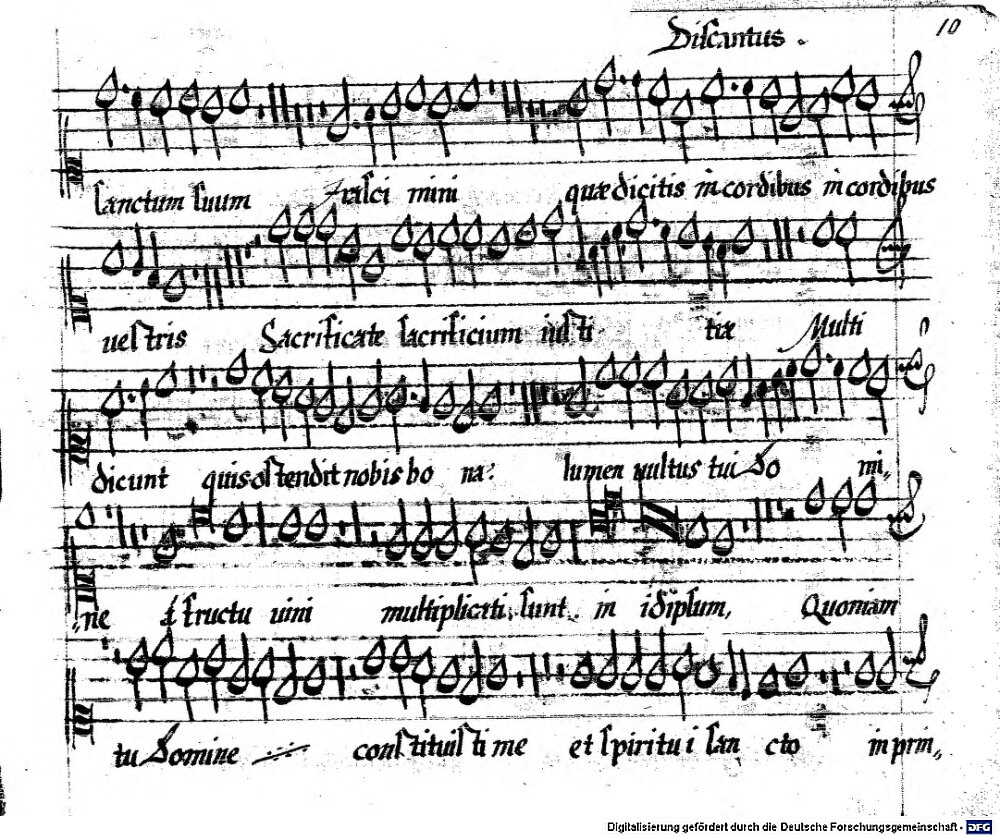 Discantus.
10
sanctum suum Irasci mini quæ dicitis in cordibus in cordibus
uestris Sacrificate sacrificium iusti tiæ Multi
dicunt quis ostendit nobis bo na? lumen uultus tui Do mi,
ne fructu uini multiplicati sunt in idipsum, Quoniam
tu Domine constituisti me et spiritu i san cto in prin,
Digitalisierung gefördert durch die Deutsche Forschungsgemeinschaft - DFG